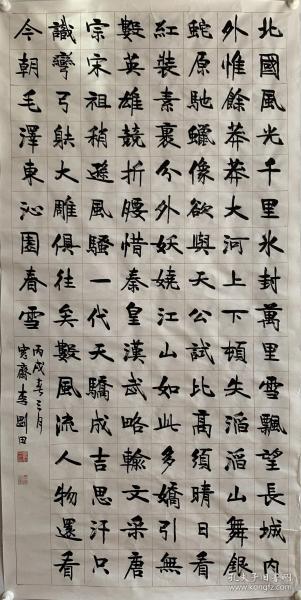 北國風光千里氷封萬里雪飄望長城内
外惟餘莽莽大河上下頓失滔滔山舞銀
蛇原馳蠟像欲與天公試比高須晴日看
紅裝素裹分外妖嬈江山如此多嬌引無
數英雄競折腰惜秦皇漢武略輸文采唐
宗宋祖稍遜風騷一代天驕成吉思汗只
識彎弓射大雕俱往矣數風流人物還看
今朝毛澤東沁園春雪
丙戌春三月
齋 劉田